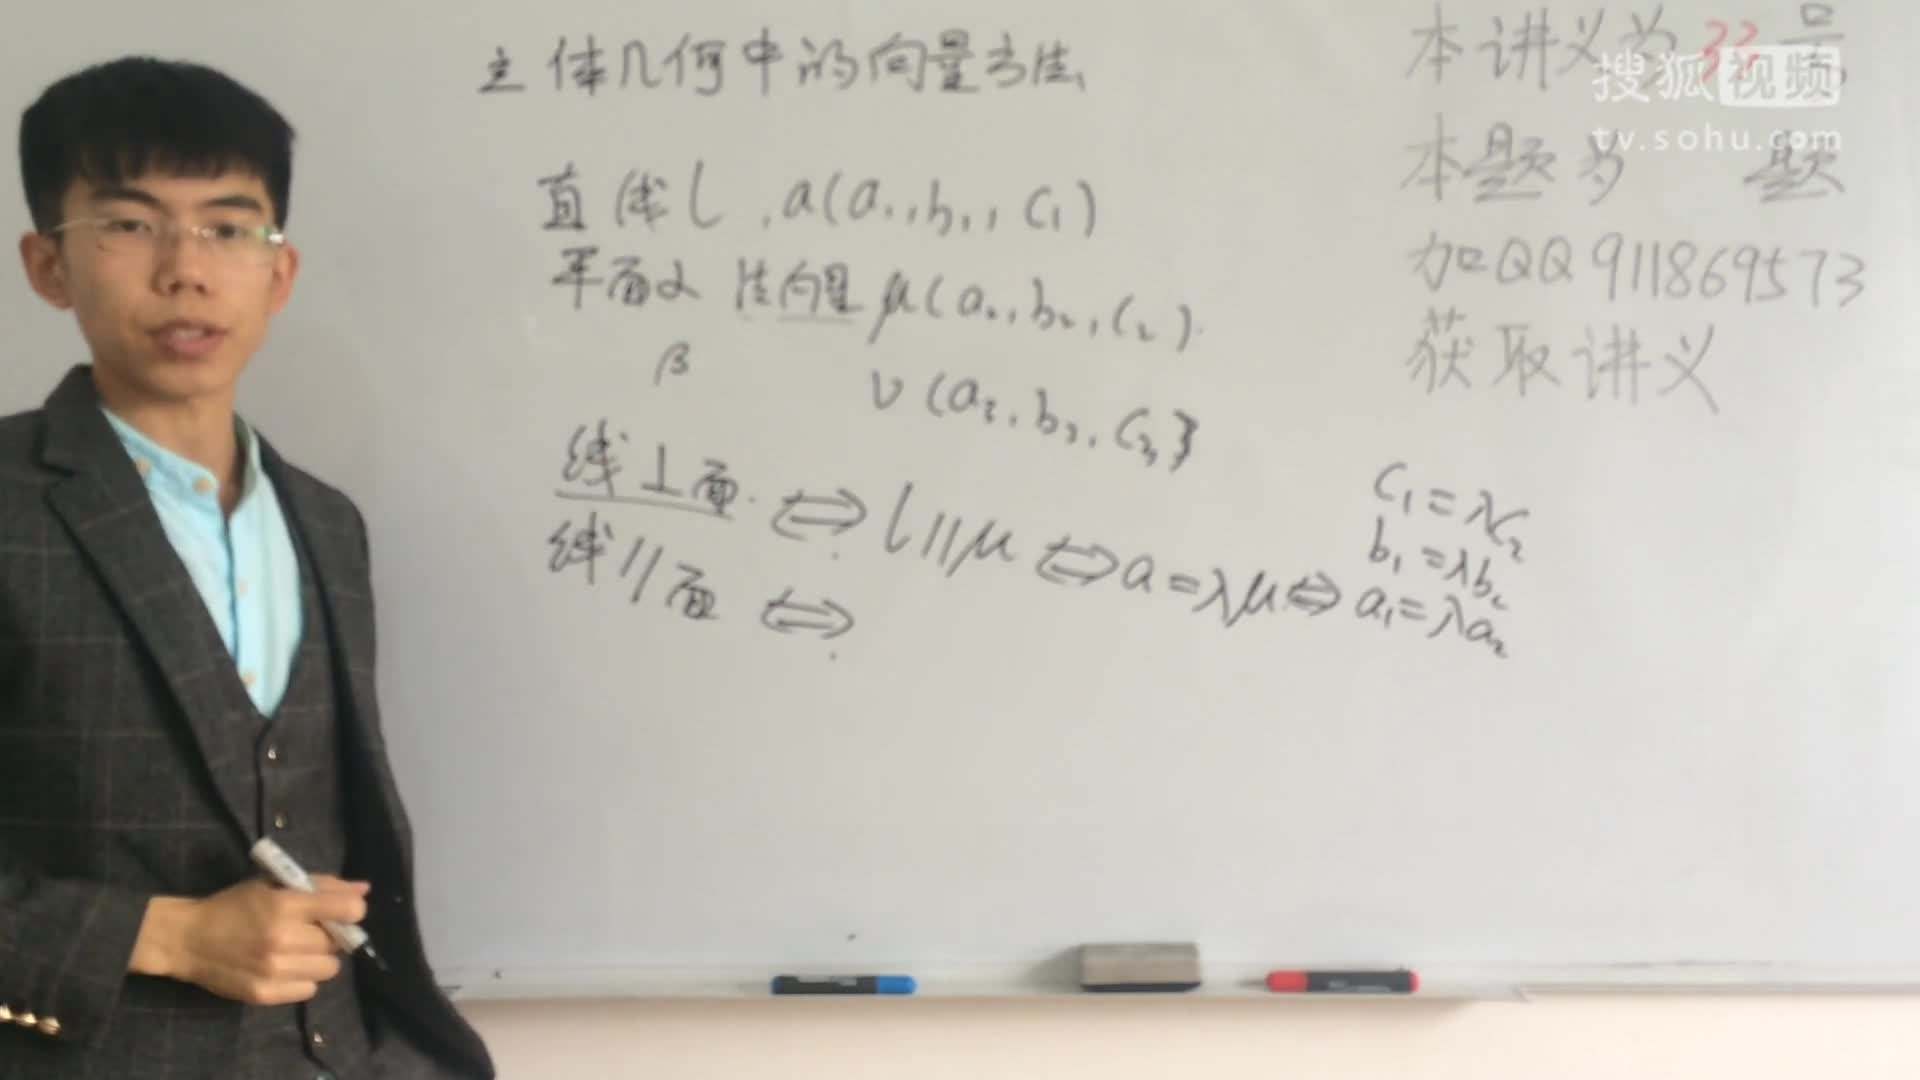 立体几何中的向量方法
直线l,a(a₁,b₁,c₁)
平面α 法向量μ(a₂,b₂,c₂).
β ν(a₃,b₃,c₃)
线⊥面. ⇔ l//μ ⇔ a=λμ ⇔ a₁=λa₂
b₁=λb₂
c₁=λc₂
线//面 ⇔
本讲义为33号
本题为 题
加QQ911869573
获取讲义
搜狐视频
tv.sohu.com